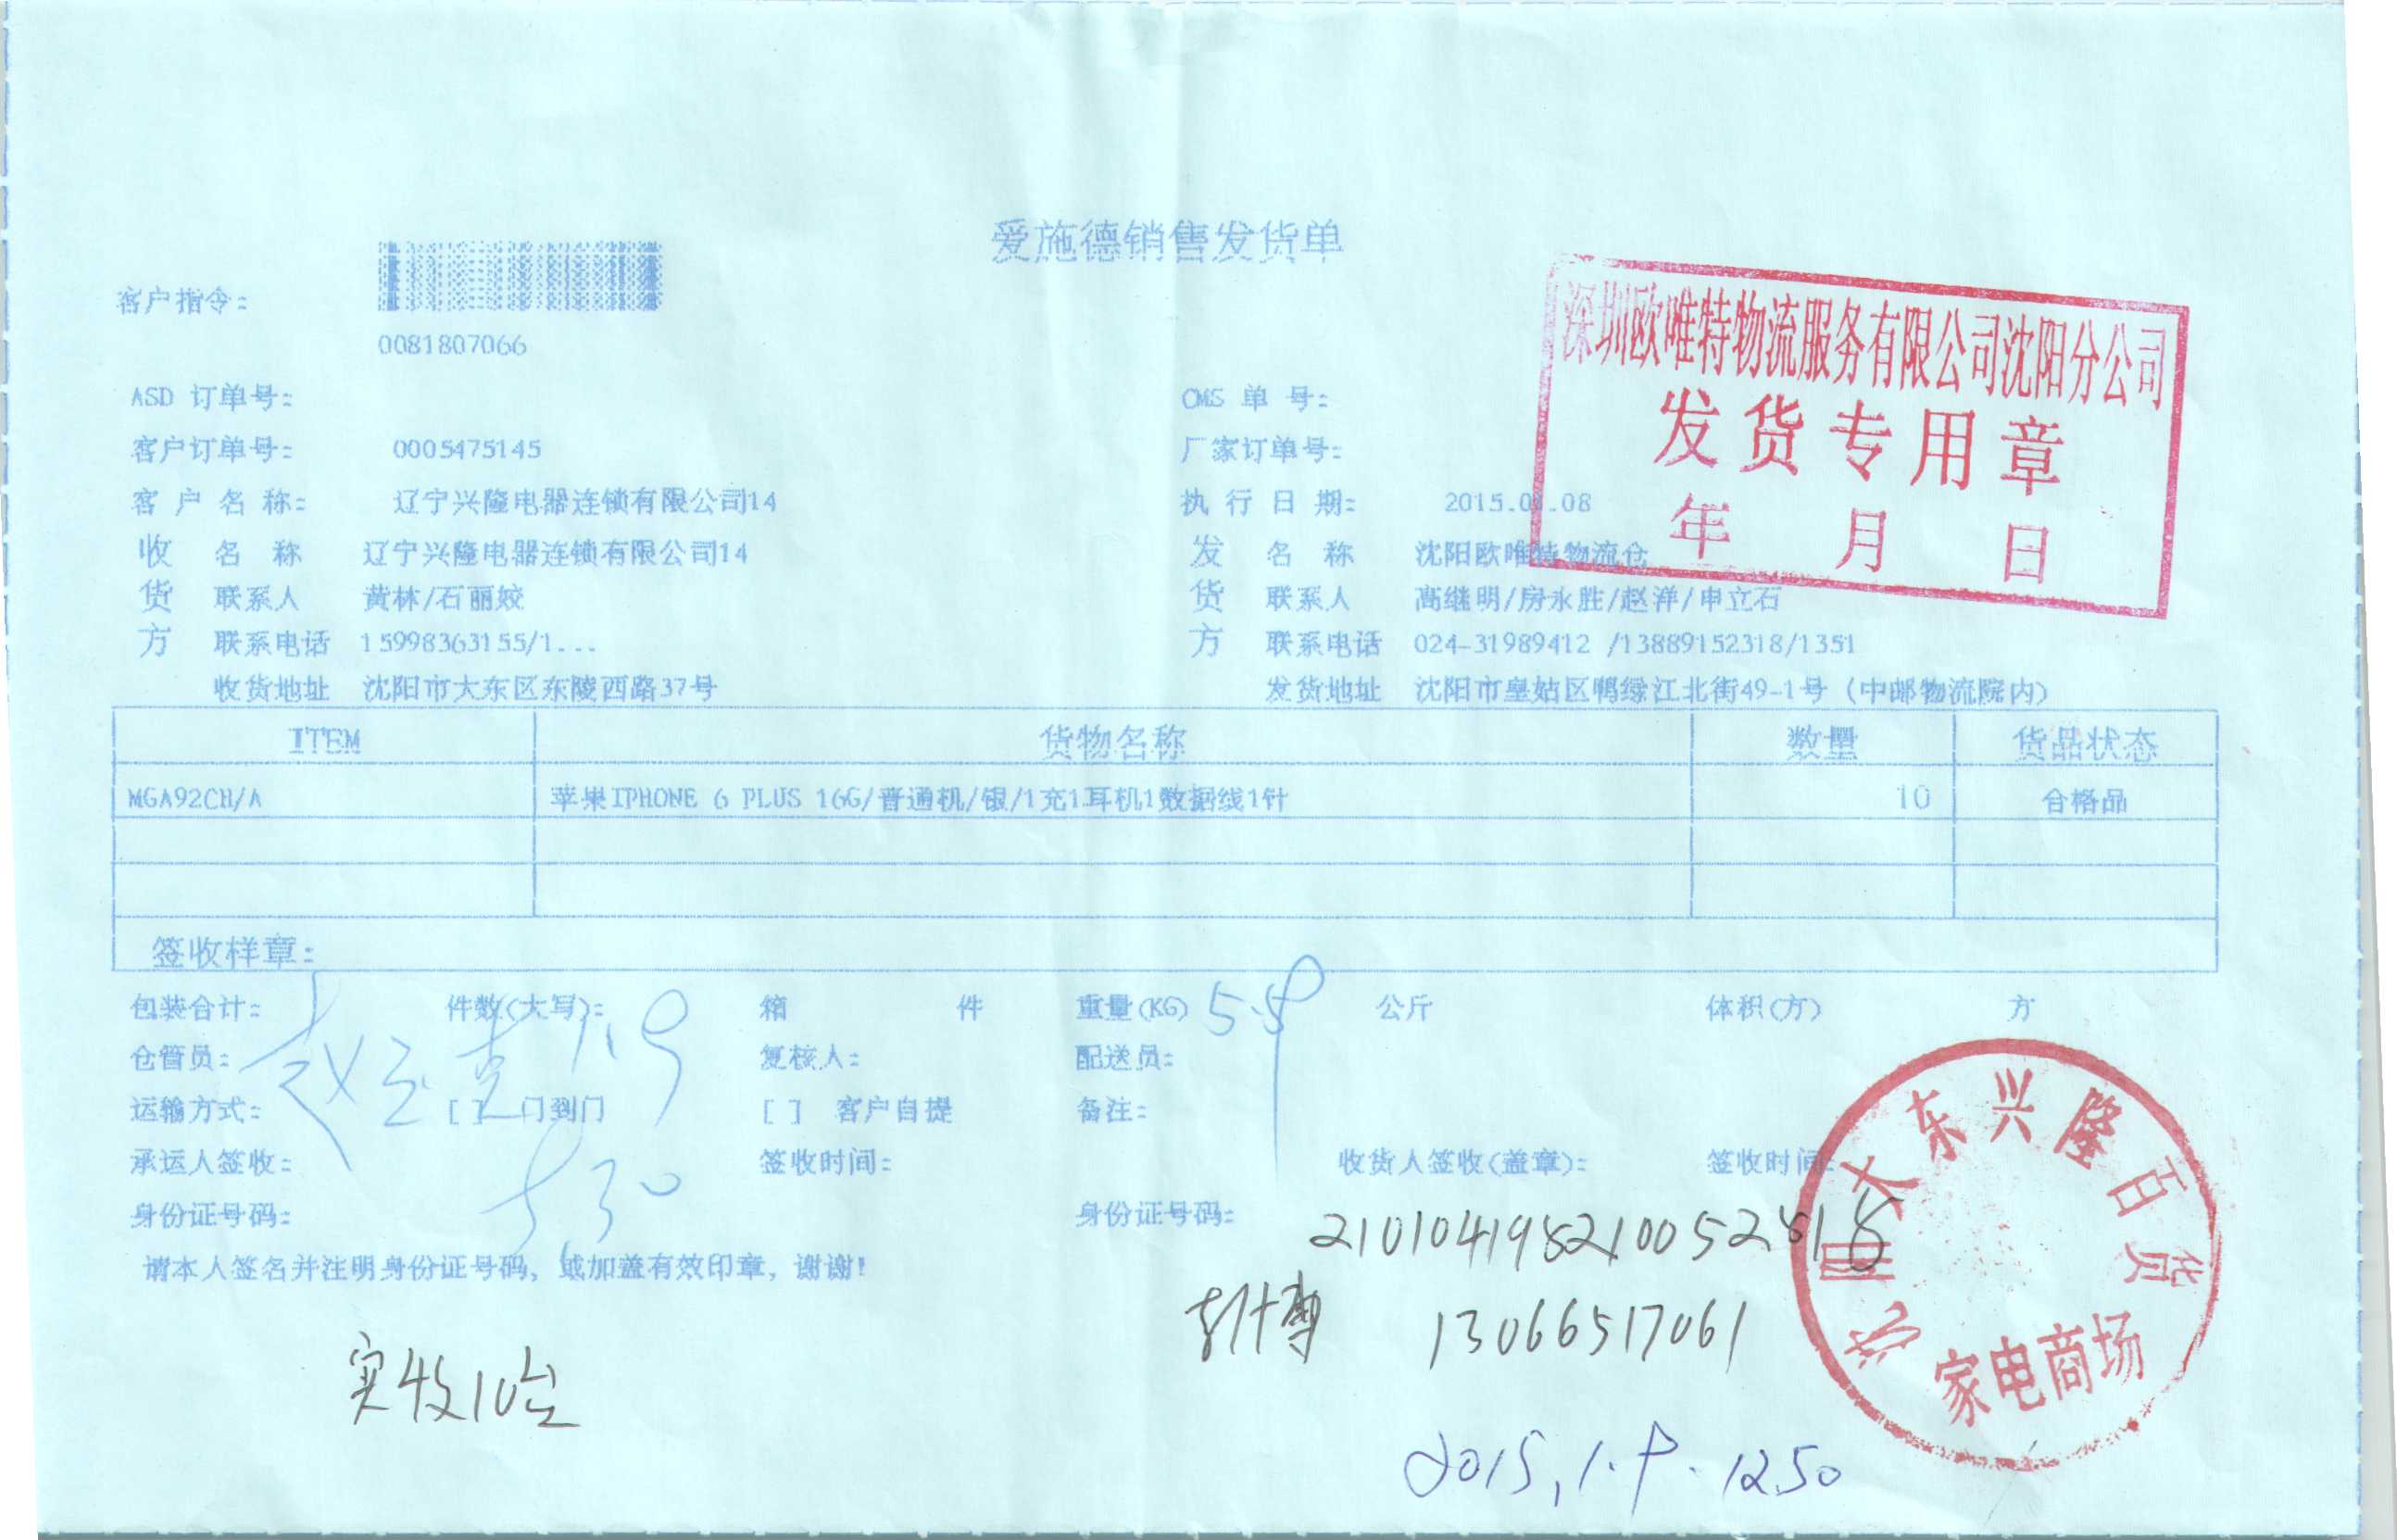 爱施德销售发货单
客户指令:
0081807066
深圳欧唯特物流服务有限公司沈阳分公司
发货专用章
年 月 日
ASD 订单号:
OMS 单 号:
客户订单号: 0005475145
厂家订单号:
客 户 名 称: 辽宁兴隆电器连锁有限公司14
执 行 日 期: 2015.01.08
收货方
名 称 辽宁兴隆电器连锁有限公司14
联系人 黄林/石丽姣
联系电话 15998363155/1...
收货地址 沈阳市大东区东陵西路37号
发货方
名 称 沈阳欧唯特物流仓
联系人 高继明/房永胜/赵洋/申立石
联系电话 024-31989412 /13889152318/1351
发货地址 沈阳市皇姑区鸭绿江北街49-1号 (中邮物流院内)
ITEM 货物名称 数量 货品状态
MGA92CH/A 苹果IPHONE 6 PLUS 16G/普通机/银/1充1耳机1数据线1针 10 合格品
签收样章:
包装合计: 件数(大写): 箱 件 重量(KG) 5.59 公斤 体积(方) 方
仓管员: 1.9 复核人: 配送员:
运输方式: [ ] 门到门 [ ] 客户自提 备注:
承运人签收: 5,30 签收时间: 收货人签收(盖章): 签收时间:
身份证号码: 身份证号码: 210104198210052818
请本人签名并注明身份证号码, 或加盖有效印章, 谢谢!
13066517061
实收10台
2015,1.9.1250
沈阳大东兴隆百货
家电商场